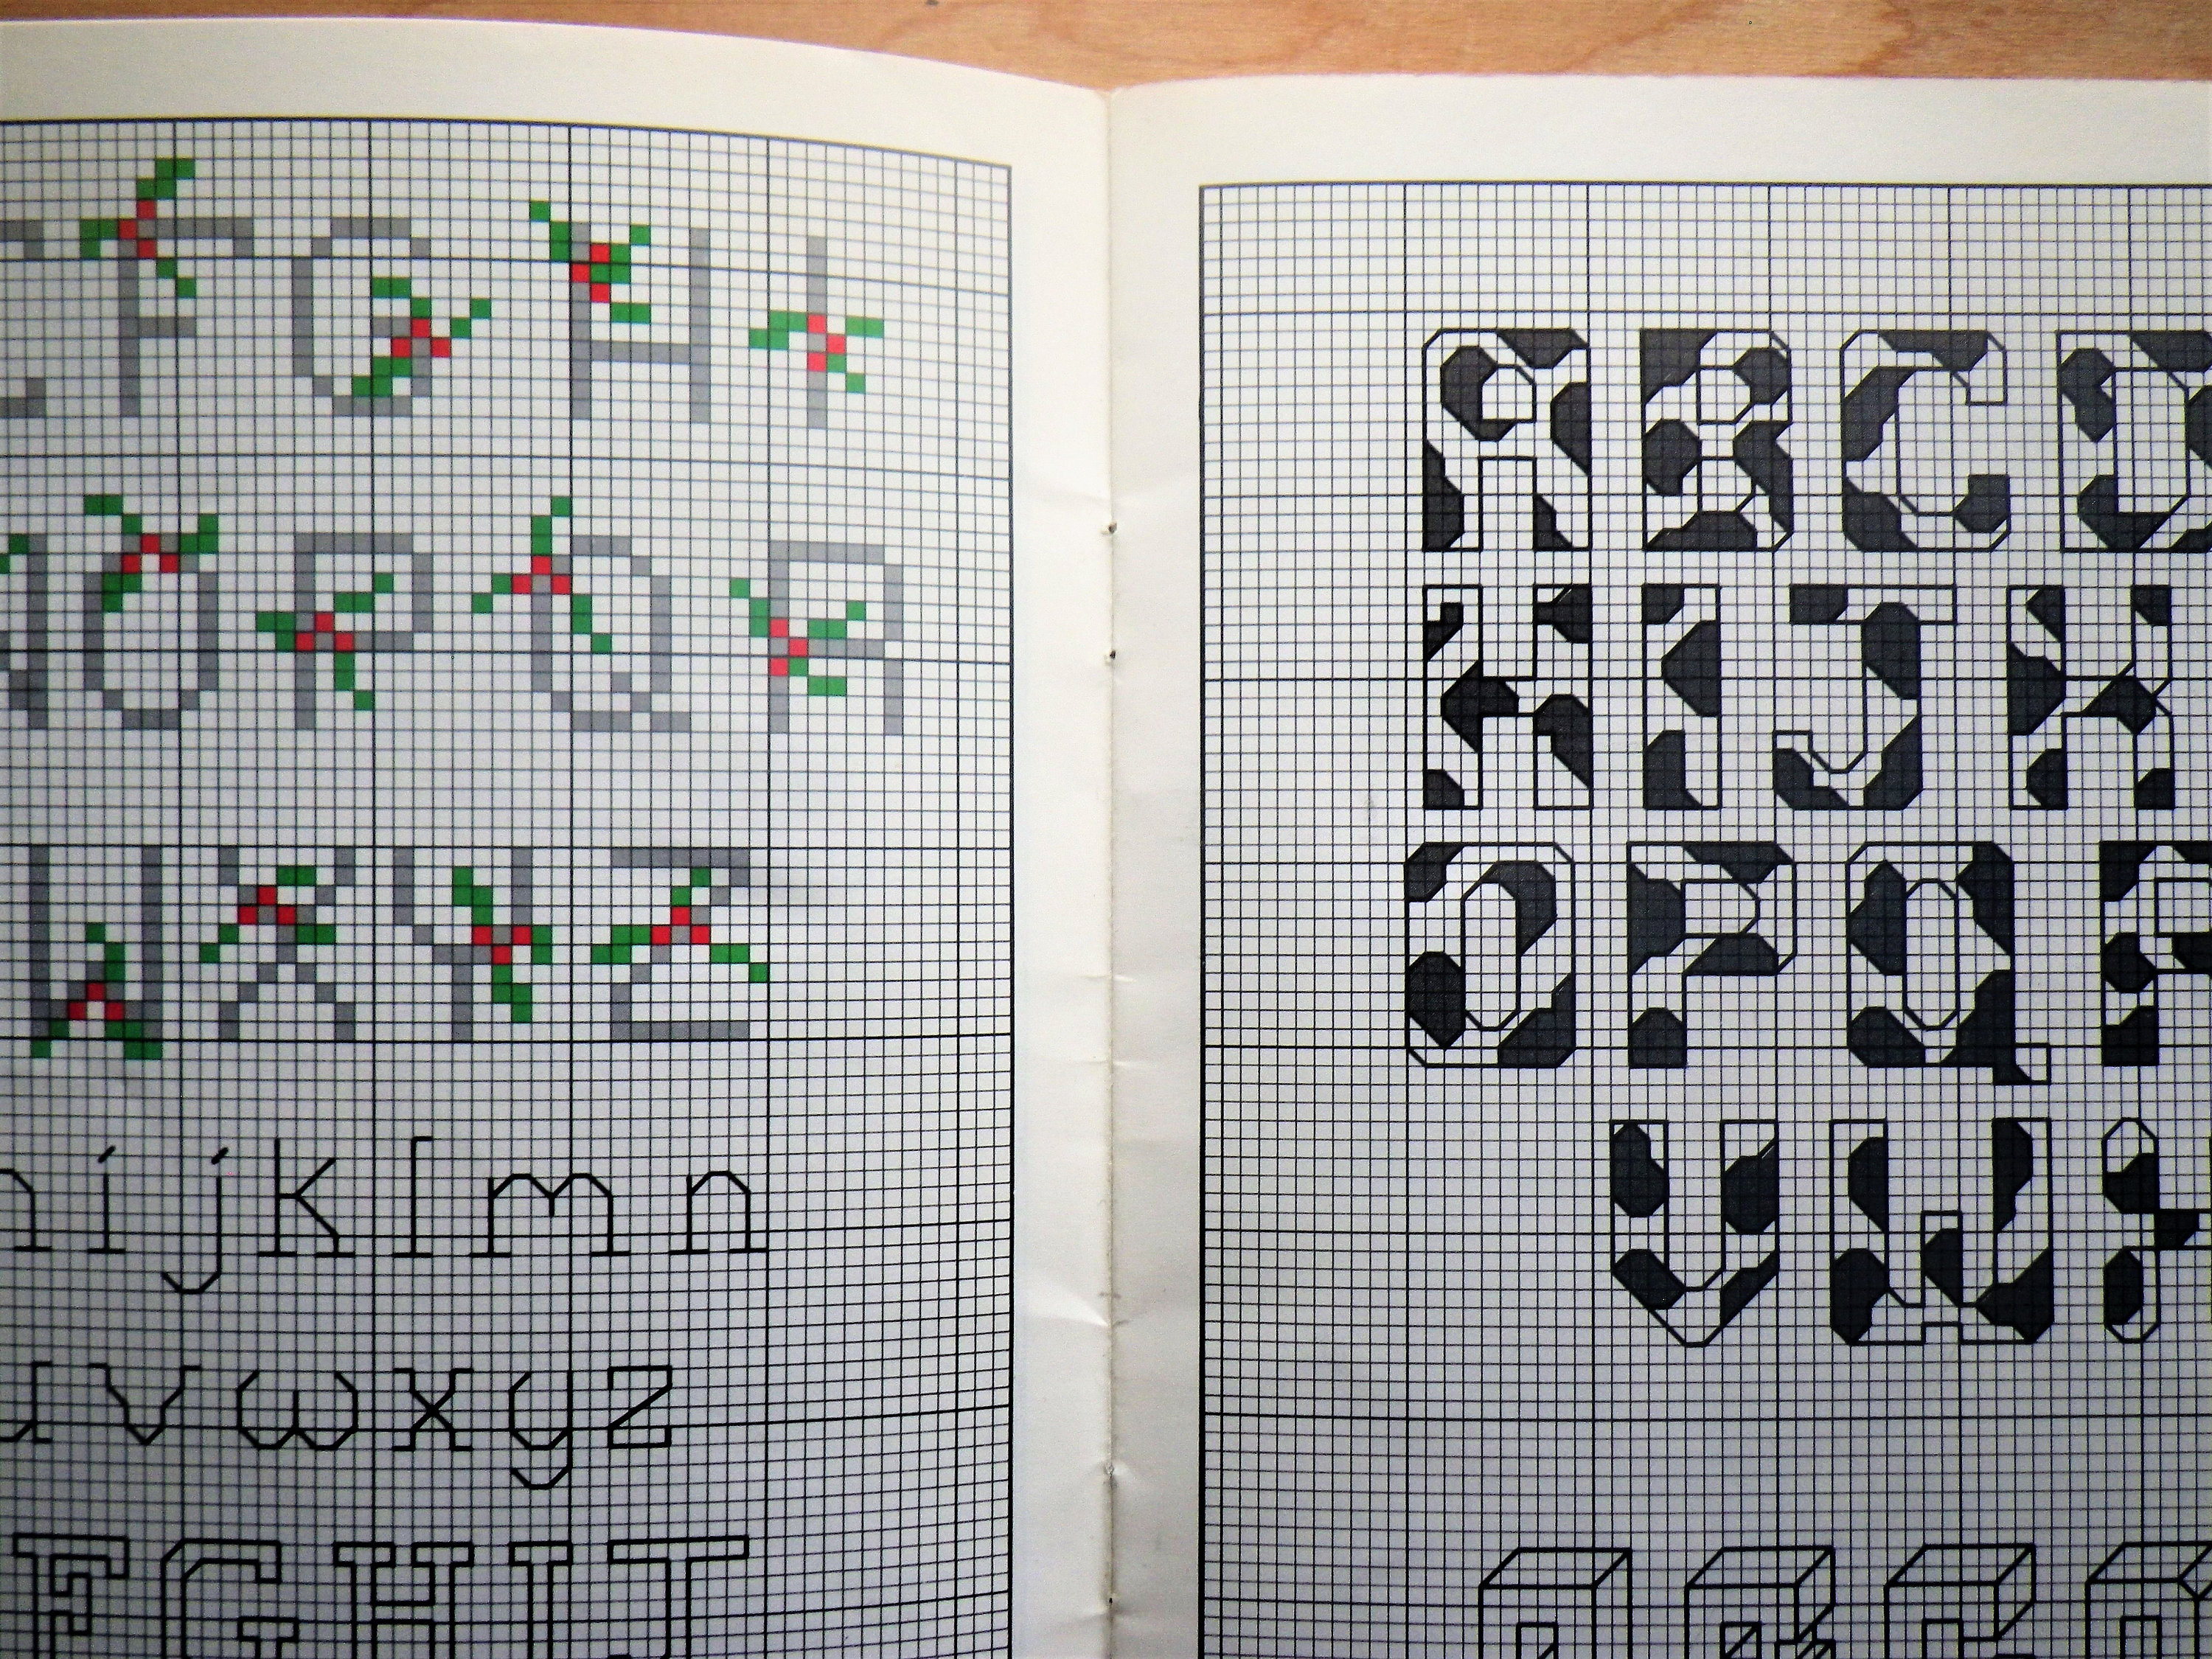 F G H I
O P Q R
W X Y Z
i j k l m n
v w x y z
F G H I J
A B C D
H I J K
O P Q R
V W
A B C